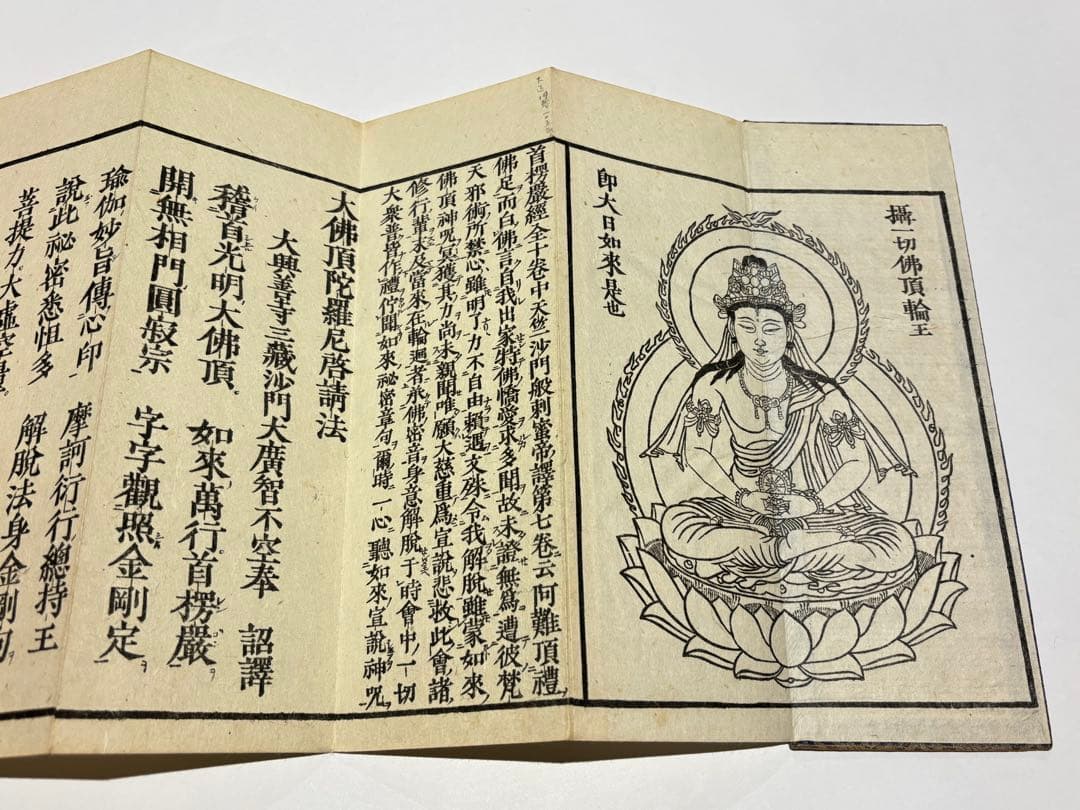 攝一切佛頂輪王
卽大日如來是也
首楞嚴經全十卷中天竺沙門般剌蜜帝譯第七卷云阿難頂禮
佛足而白佛言自我出家恃佛憍愛求多聞故未證無爲遭彼梵
天邪術所禁心雖明了力不自由賴遇文殊令我解脫雖蒙如來
佛頂神呪冥獲其力尚未親聞唯願大慈重爲宣說悲救此會諸
修行輩末及當來在輪廻者承佛密音身意解脫于時會中一切
大衆普皆作禮佇聞如來祕密章句爾時一心聽如來宣說神呪
大佛頂陀羅尼啓請法
大興善寺三藏沙門大廣智不空奉 詔譯
稽首光明大佛頂 如來萬行首楞嚴
開無相門圓寂宗 字字觀照金剛定
瑜伽妙旨傳心印 摩訶衍行總持王
說此祕密悉怛多 解脫法身金剛句
菩提力大虛空量